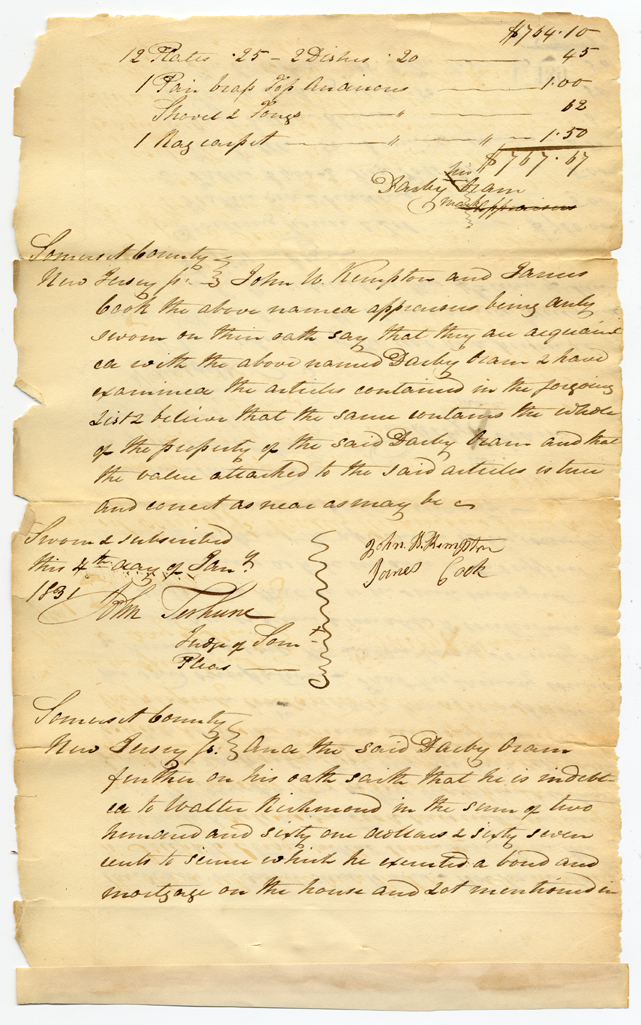 $764.10
12 Plates .25 - 2 Dishes .20 45
1 Pair brass Top Andirons 1.00
Shovel & Tongs " 62
1 Rag carpet " " 1.50
$767.67
his
Darby X Oram
mark Appraisers
Somerset County
New Jersey ss. John W. Kempton and James
Cook the above named appraisers being duly
sworn on their oath say that they are acquaint
ed with the above named Darby Oram & have
examined the articles contained in the forgoing
List & believe that the same contains the whole
of the property of the said Darby Oram and that
the value attached to the said articles is true
and correct as near as may be
Sworn & subscribed
this 4th day of Jany.
1831
John W. Kempton
James Cook
John Terhune
Judge of Somt.
Pleas
Somerset County
New Jersey ss. And the said Darby Oram
further on his oath saith that he is indebt
ed to Walter Richmond in the sum of two
hundred and sixty one dollars & sixty seven
cents to secure which he executed a bond and
mortgage on the house and Lot mentioned in